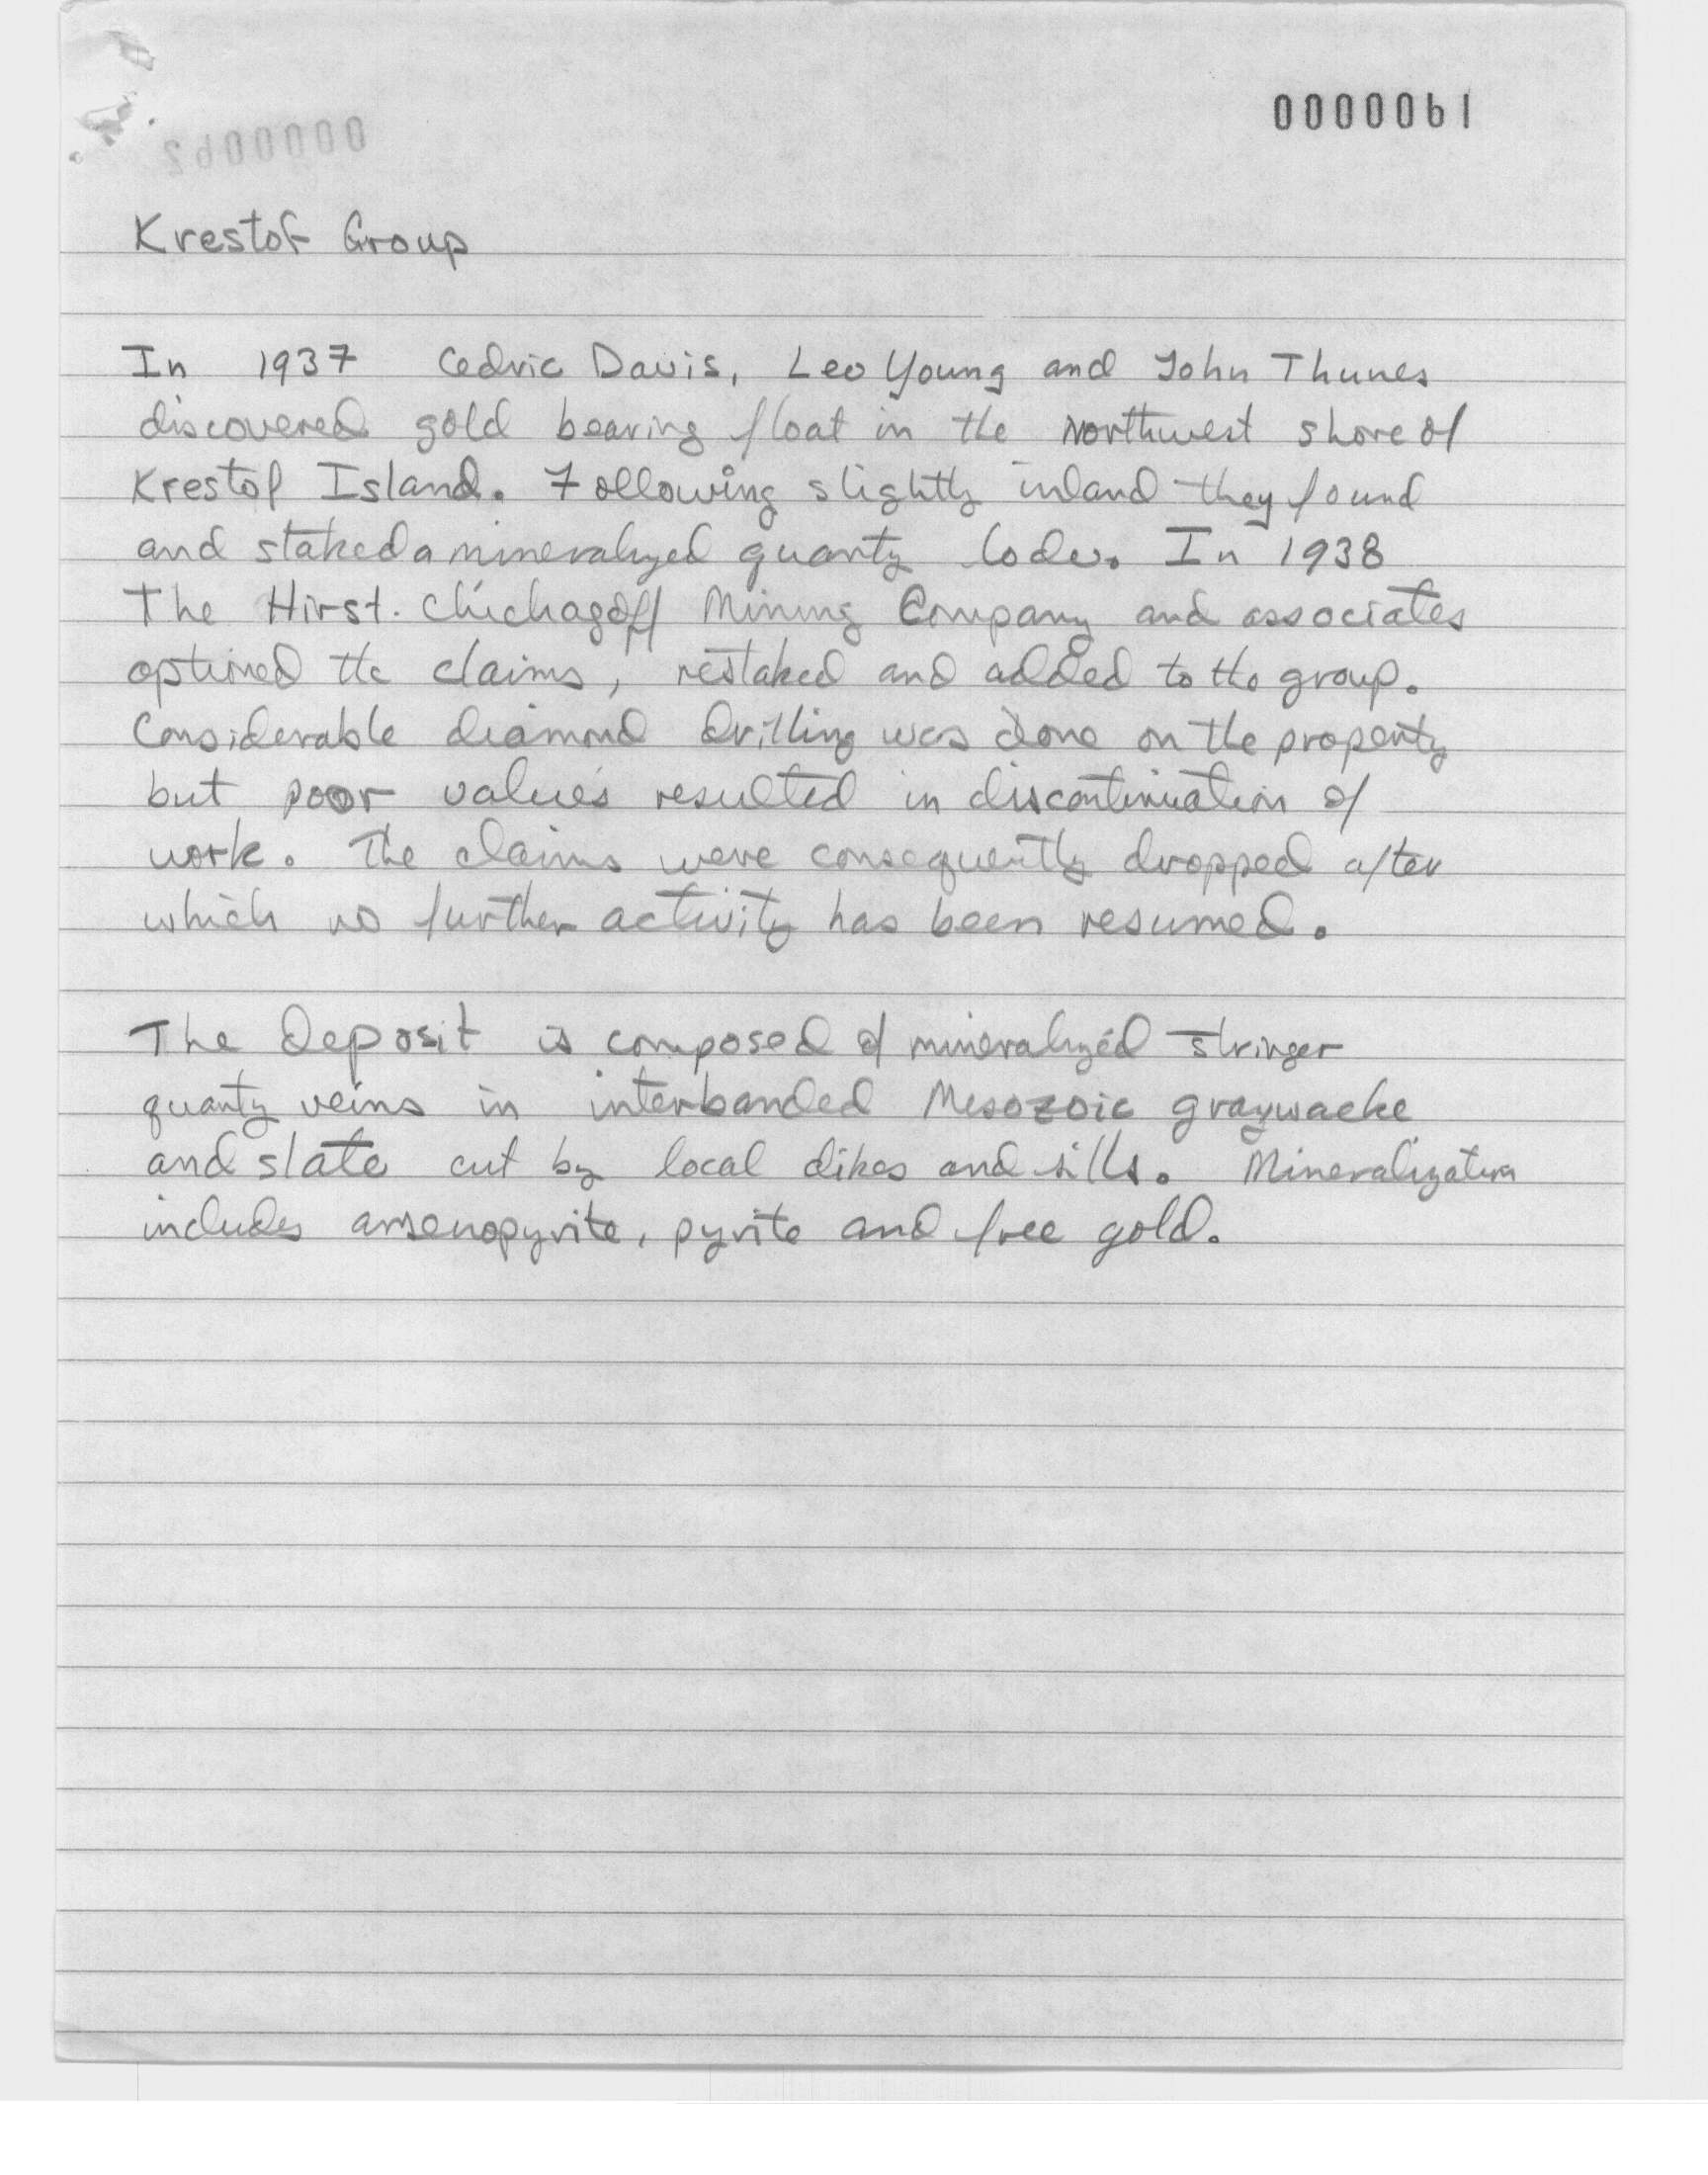 0000061
Krestof Group
In 1937 Cedric Davis, Leo Young and John Thunes
discovered gold bearing float in the Northwest shore of
Krestof Island. Following slightly inland they found
and staked a mineralized quartz lode. In 1938
The Hirst-Chichagoff Mining Company and associates
optioned the claims, restaked and added to the group.
Considerable diamond drilling was done on the property
but poor values resulted in discontinuation of
work. The claims were consequently dropped after
which no further activity has been resumed.
The Deposit is composed of mineralized stringer
quartz veins in interbanded Mesozoic graywacke
and slate cut by local dikes and sills. Mineralization
includes arsenopyrite, pyrite and free gold.